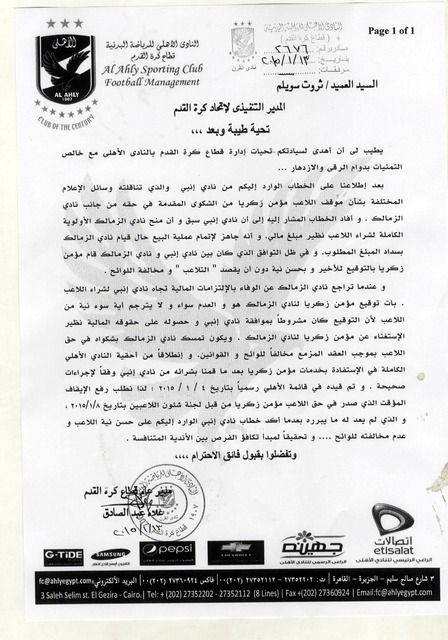 Page 1 of 1
النادى الأهلى للرياضة البدنية
قطاع كرة القدم
Al Ahly Sporting Club
Football Management
الأهلى
AL AHLY
1907
CLUB OF THE CENTURY
النادى الأهلى للرياضة البدنية
( قطاع كرة القدم )
٢٦٧٦
تاريخ:
مرفقات:
السيد العميد/ ثروت سويلم
المدير التنفيذى لإتحاد كرة القدم
تحية طيبة وبعد ،،،
يطيب لى أن أهدى لسيادتكم تحيات إدارة قطاع كرة القدم بالنادى الأهلى مع خالص
التمنيات بدوام الرقى والازدهار ...
بعد إطلاعنا على الخطاب الوارد إليكم من نادي إنبي والذي تناقلته وسائل الإعلام
المختلفة بشأن موقف اللاعب مؤمن زكريا من الشكوى المقدمة في حقه من جانب نادي
الزمالك . و أفاد الخطاب المشار إليه إلى أن نادي إنبي سبق و أن منح نادي الزمالك الأولوية
الكاملة لشراء اللاعب نظير مبلغ مالي. و انه جاهز لإتمام عملية البيع حال قيام نادي الزمالك
بسداد المبلغ المطلوب. و في ظل التوافق الذي كان بين نادي إنبي و نادي الزمالك قام مؤمن
زكريا بالتوقيع للأخير و بحسن نية دون أن يقصد " التلاعب " و مخالفة اللوائح .
و عندما تراجع نادي الزمالك عن الوفاء بالإلتزامات المالية تجاه نادي إنبي لشراء اللاعب
. بات توقيع مؤمن زكريا لنادي الزمالك هو و العدم سواء و لا يترجم أية سوء نية من
اللاعب لأن التوقيع كان مشروطاً بموافقة نادي إنبي و حصوله على حقوقه المالية نظير
الإستغناء عن مؤمن زكريا لنادي الزمالك . ويكون تمسك نادي الزمالك بشكواه في حق
اللاعب بموجب العقد المزمع مخالفاً للوائح و القوانين. و إنطلاقاً من أحقية النادي الأهلي
الكاملة في الإستفادة بخدمات مؤمن زكريا بعد ما قمنا بشرائه من نادي إنبي وفقاً لإجراءات
صحيحة . و تم قيده في قائمة الأهلي رسمياً بتاريخ ٤ / ١ / ٢٠١٥ ، لذا نطلب رفع الإيقاف
المؤقت الذي صدر في حق اللاعب مؤمن زكريا من قبل لجنة شئون اللاعبين بتاريخ ٢٠١٥/١/٨ ،
و الذي لم يعد له ما يبرره بعدما أكد خطاب نادي إنبي الوارد إليكم على حسن نية اللاعب و
عدم مخالفته للوائح .... و تحقيقاً لمبدأ تكافؤ الفرص بين الأندية المتنافسة .
وتفضلوا بقبول فائق الاحترام ،،،،
مدير عام قطاع كرة القدم
علاء عبد الصادق
اتصالات
etisalat
الراعى الرئيسى للنادى الأهلى
جهينة
CHEVROLET
pepsi
SAMSUNG
G-TIDE
٣ شارع صالح سليم - الجزيرة - القاهرة | ت: ٢٧٣٥٢٢٠٢ - ٢٧٣٥٢١١٢ (٢٠٢) | فاكس ٢٧٣٦٠٩٢٤ (٢٠٢) | البريد الألكتروني: fc@ahlyegypt.com
3 Saleh Selim st. El Gezira - Cairo. | Tel: + (202) 27352202 - 27352112 (8 Lines) | Fax +(202) 27360924 | Email:fc@ahlyegypt.com